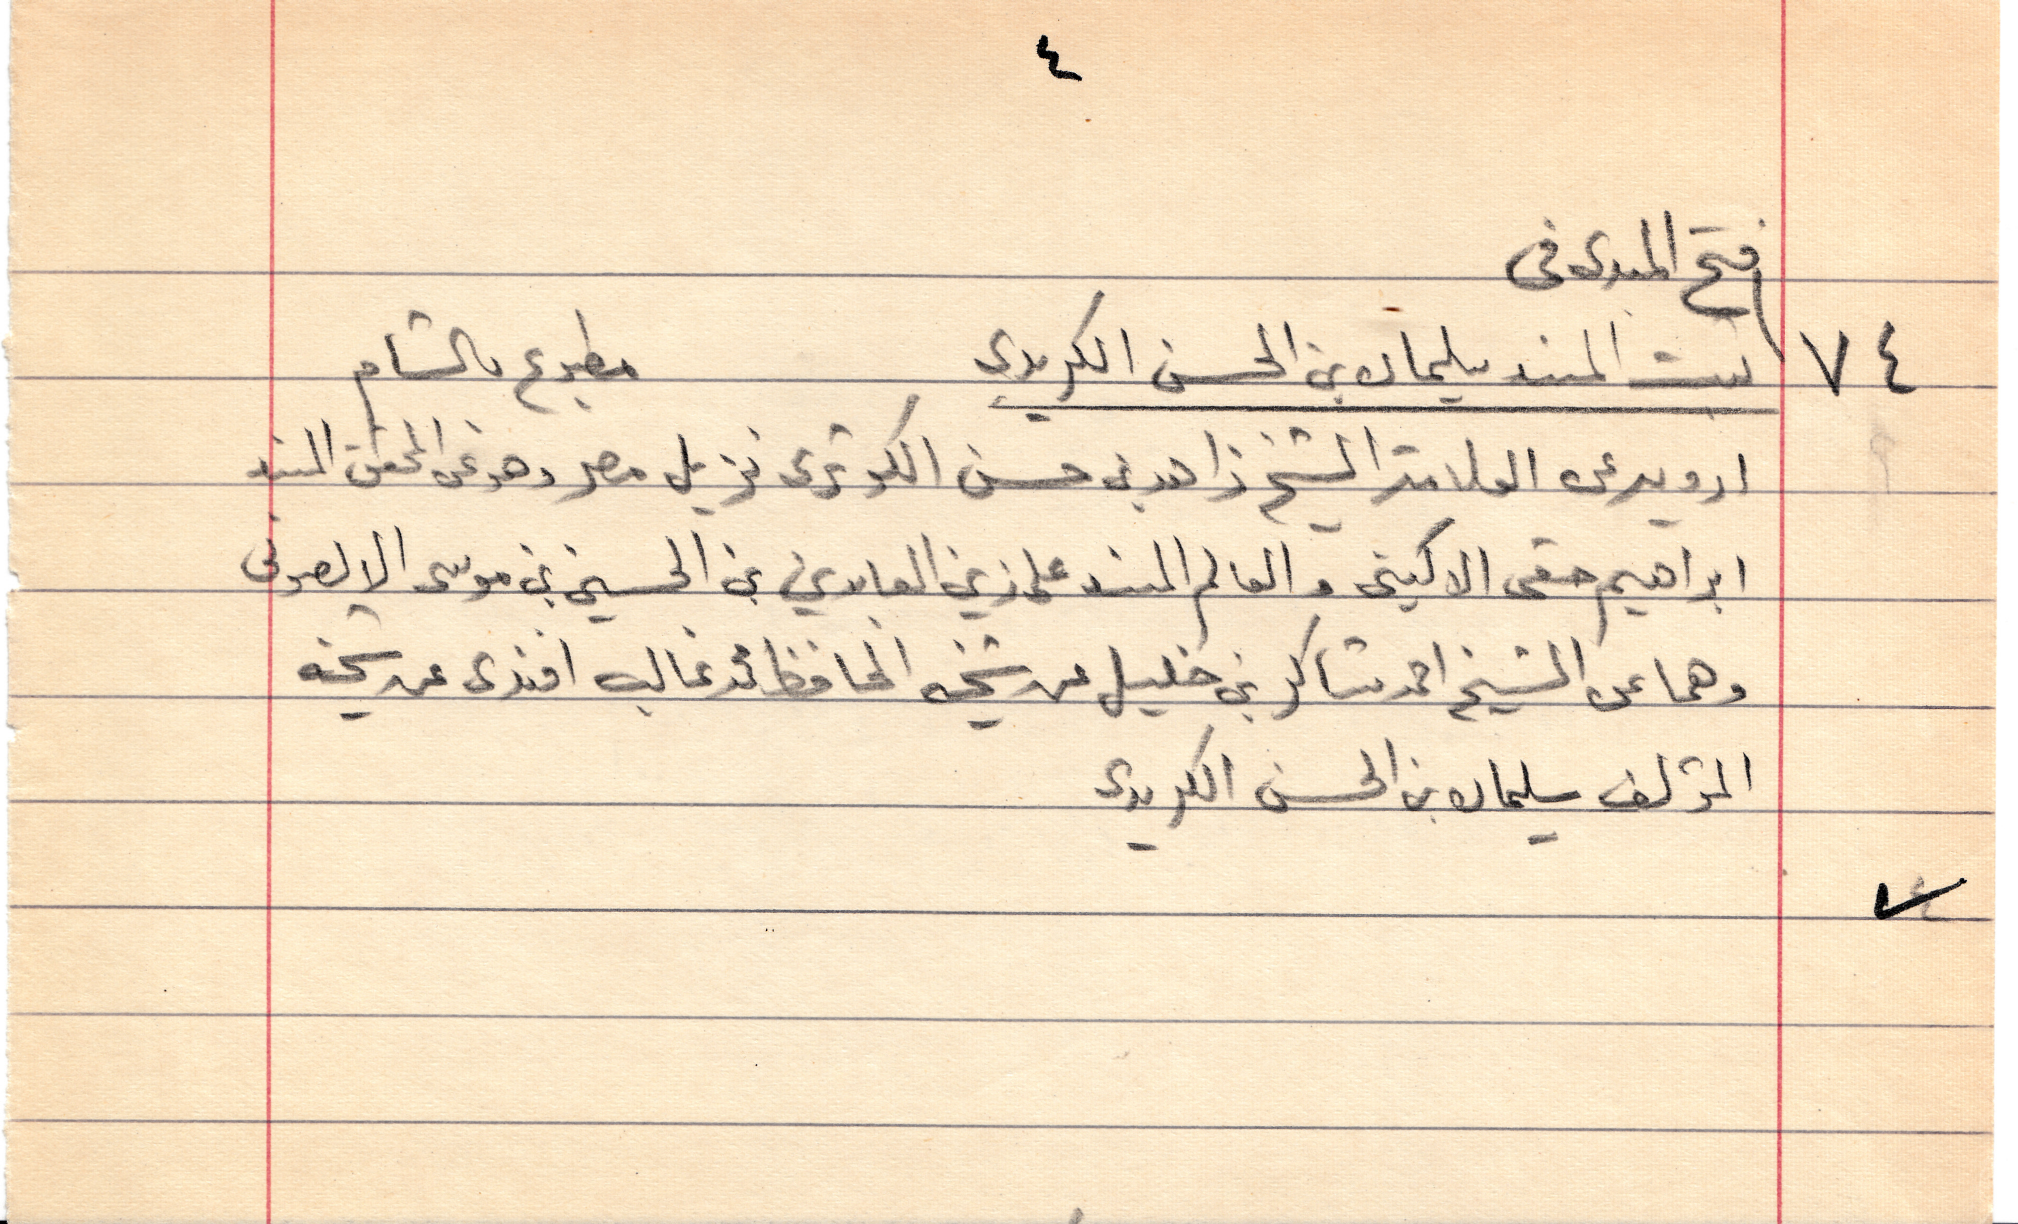 ٤
فتح المبدى فى
٧٤ ثبت المسند سليمان بن الحسن الكريدى مطبوع بالشام
ارويه عن العلامة الشيخ زاهد بن حسن الكوثرى نزيل مصر وهو عن المحقق المسند
ابراهيم حقى الاكينى والعالم المسند على زين العابدين بن الحسين بن موسى الالصونى
وهما عن الشيخ احمد شاكر بن خليل عن شيخه الحافظ محمد غالب افندى عن شيخه
المؤلف سليمان بن الحسن الكريدى